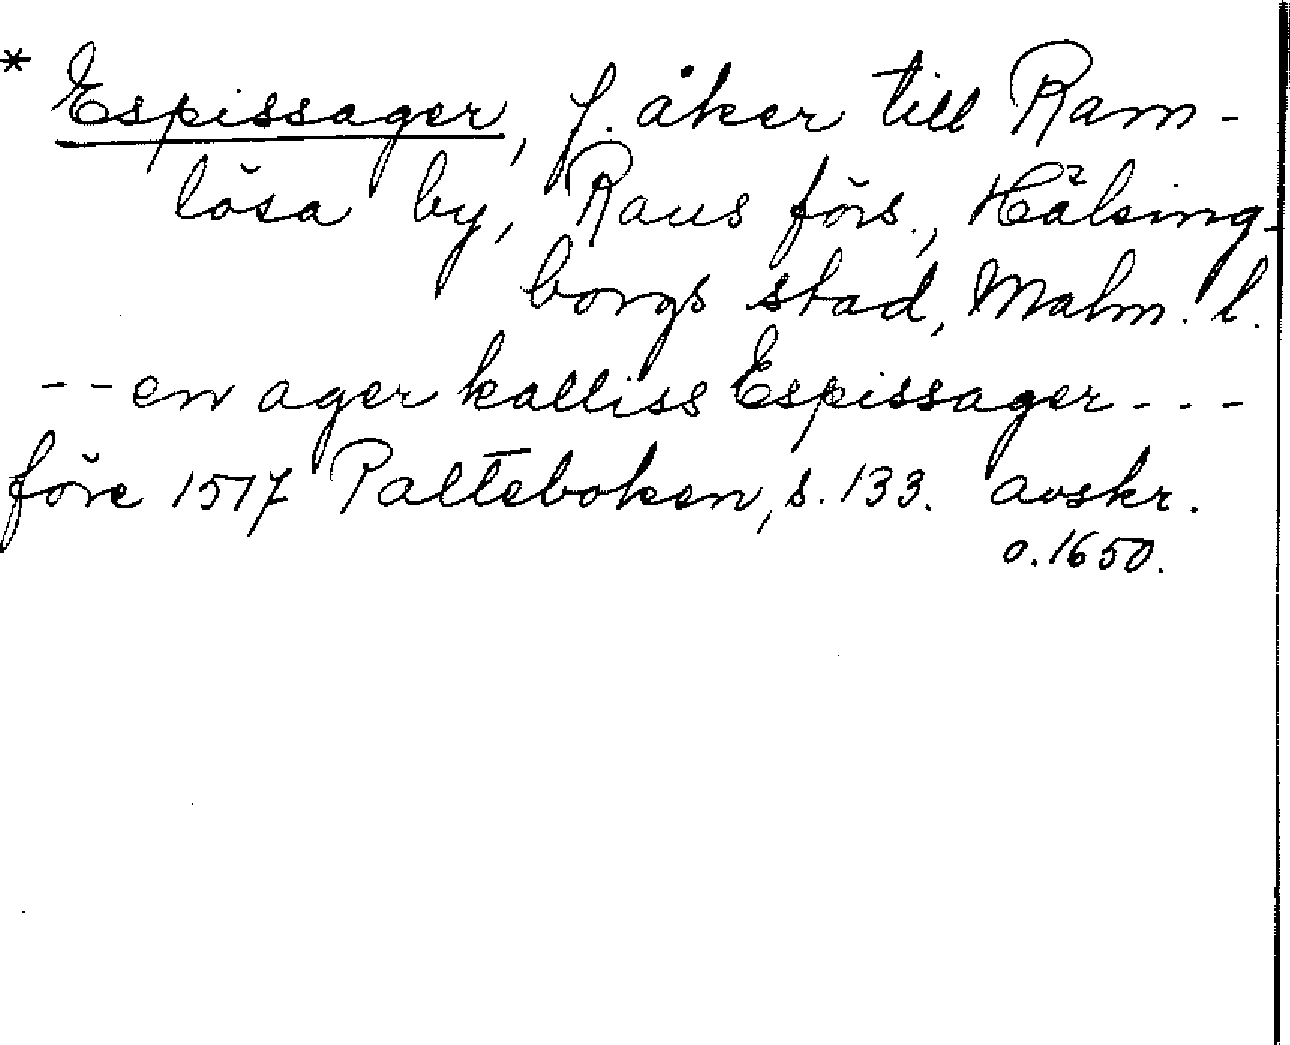 * Espissager, f. åker till Ram-
lösa by, Raus förs., Hälsing-
borgs stad, Malm. l.
-- en ager kalliss Espissager - - -
före 1517 Palteboken, s. 133. avskr.
o. 1650.